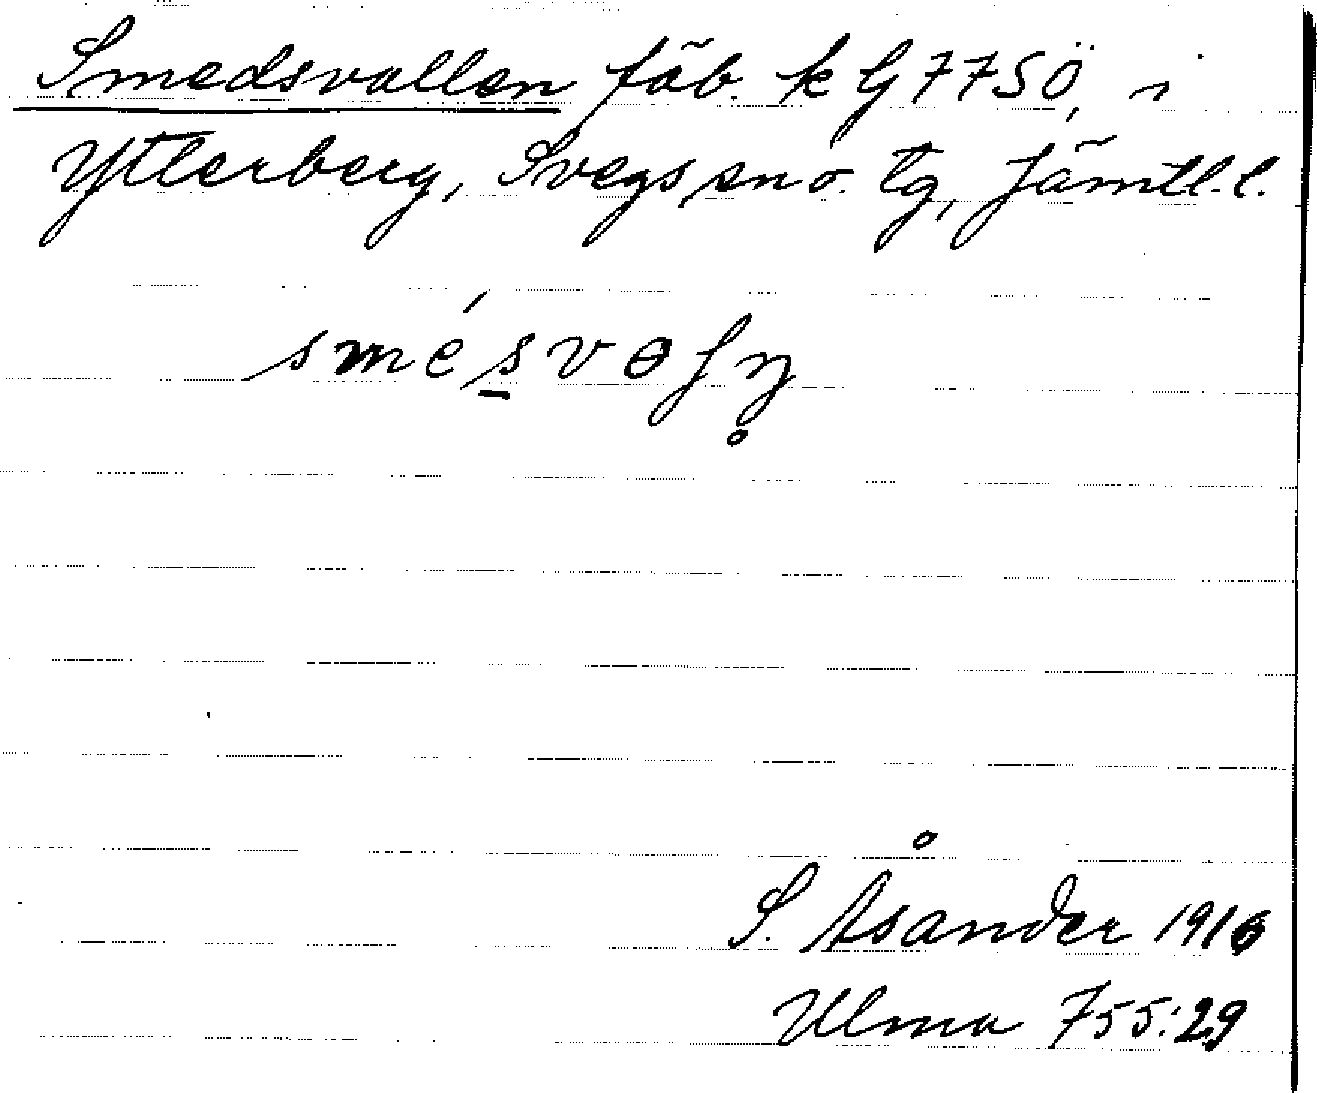 Smedsvallen fäb. k G 7750, i
Ytterberg, Svegs sn o. tg, Jämtl. l.
smésvɵʃn̥
S. Åsander 1916
Ulma 755:29